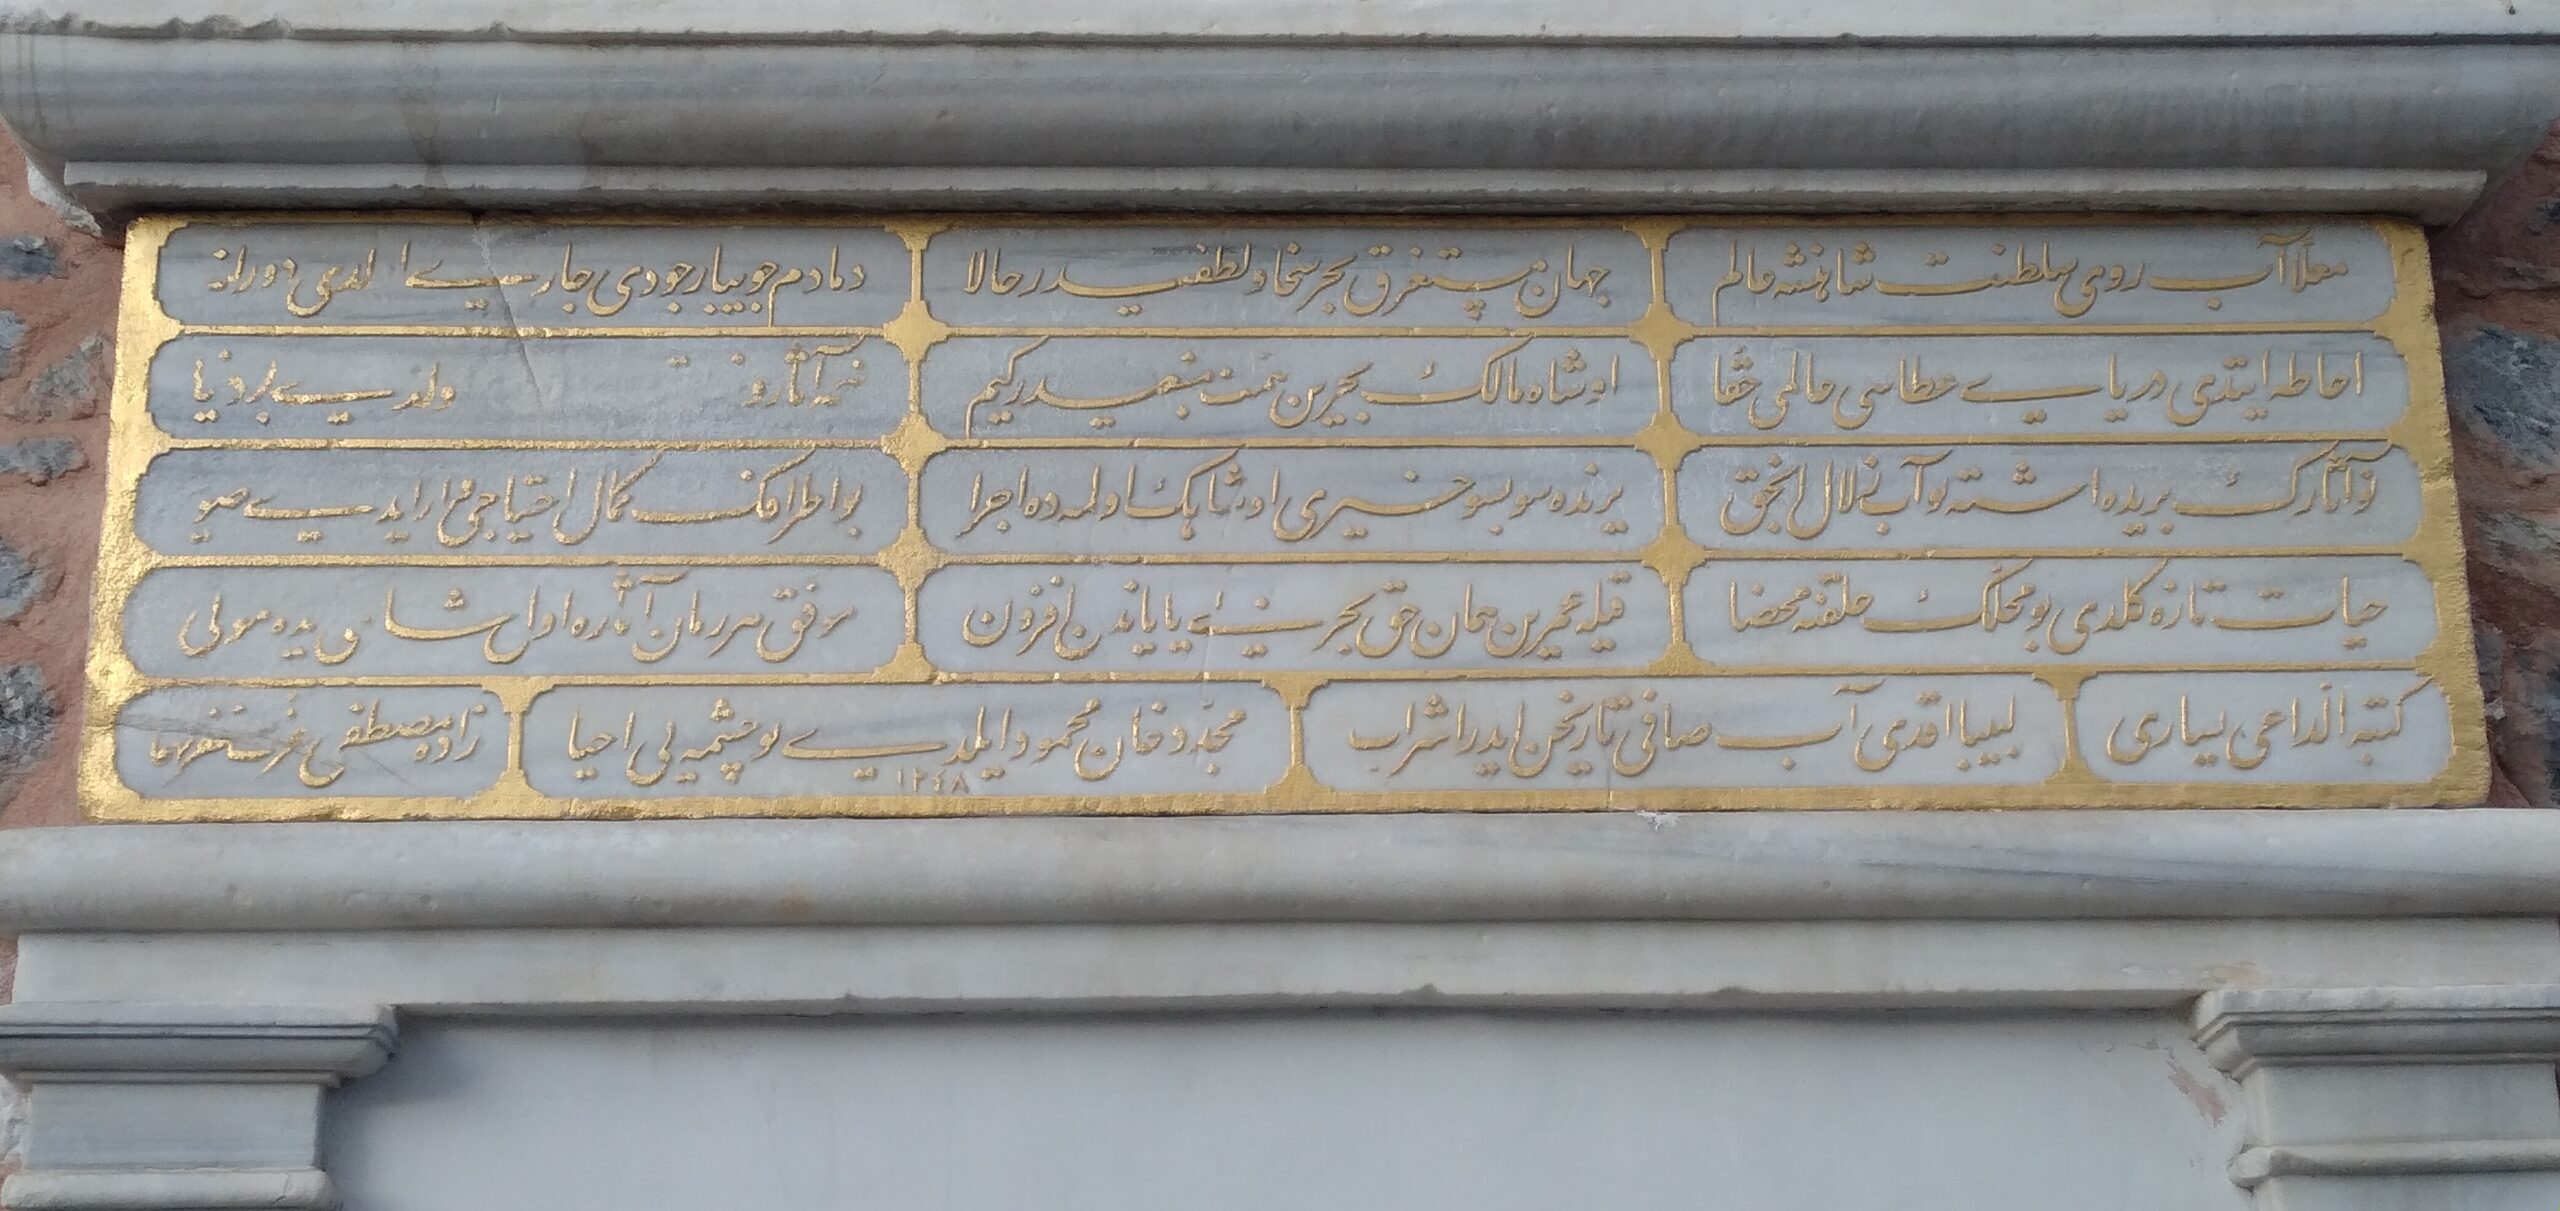 معلا آب روی سلطنت شاهنشه عالم
جهان مستغرق بحر سخا و لطفیدر حالا
دمادم جویبار جودی جاری اولدی دورانه
احاطه ایتدی دریای عطاسی عالمی حقا
او شاه مالك بحرین همت منبعیدر کیم
نیجه آثاره ولدی بر دنیا
آثارك بریده اشته بو آب زلال الحق
یرنده سو بسو خیری او شاهك اولمده اجرا
بو اطرافك کمال احتیاجی وار ایدی صویه
حیات تازه کلدی بو محلك خلقنه محضا
قیله عمرین همان حق بحر بی پایاندن افزون
موفق هر زمان آثاره اول شاهی ایده مولی
کتبه الداعی یساری
لبیبا اقدی آب صافی تاریخن ایدر اشراب
مجدد خان محمود ایلدی بو چشمه یی احیا
۱۲٤۸
زاده مصطفی عزت غفر لهما